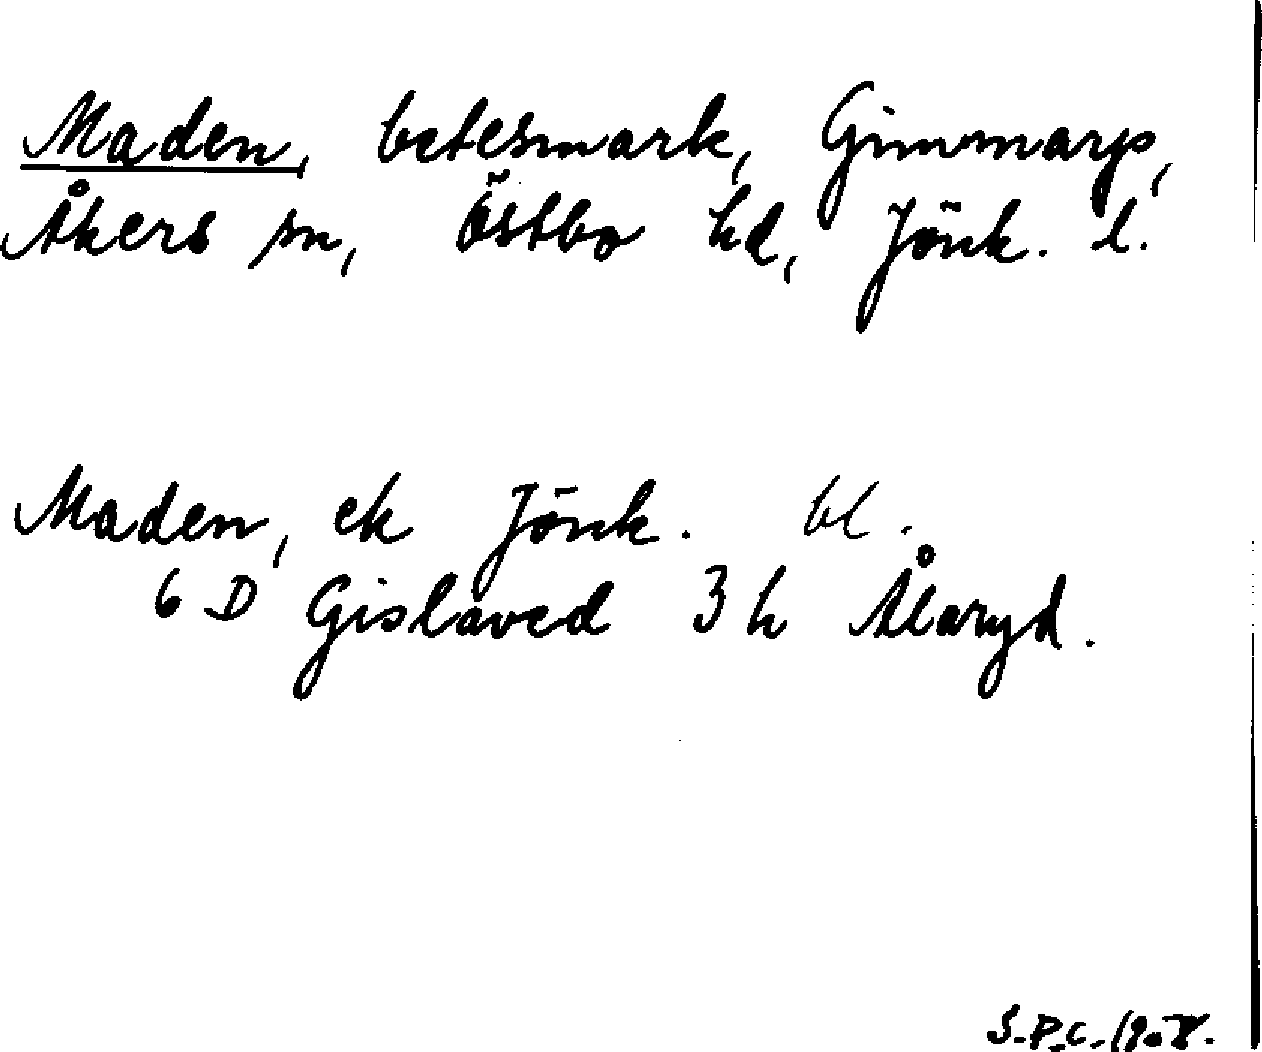 Maden, betesmark, Gimmarp,
Åkers sn, Östbo hd, Jönk. l.
Maden, ek Jönk. bl.
6 D Gislaved 3 h Ålaryd.
S.P.C.